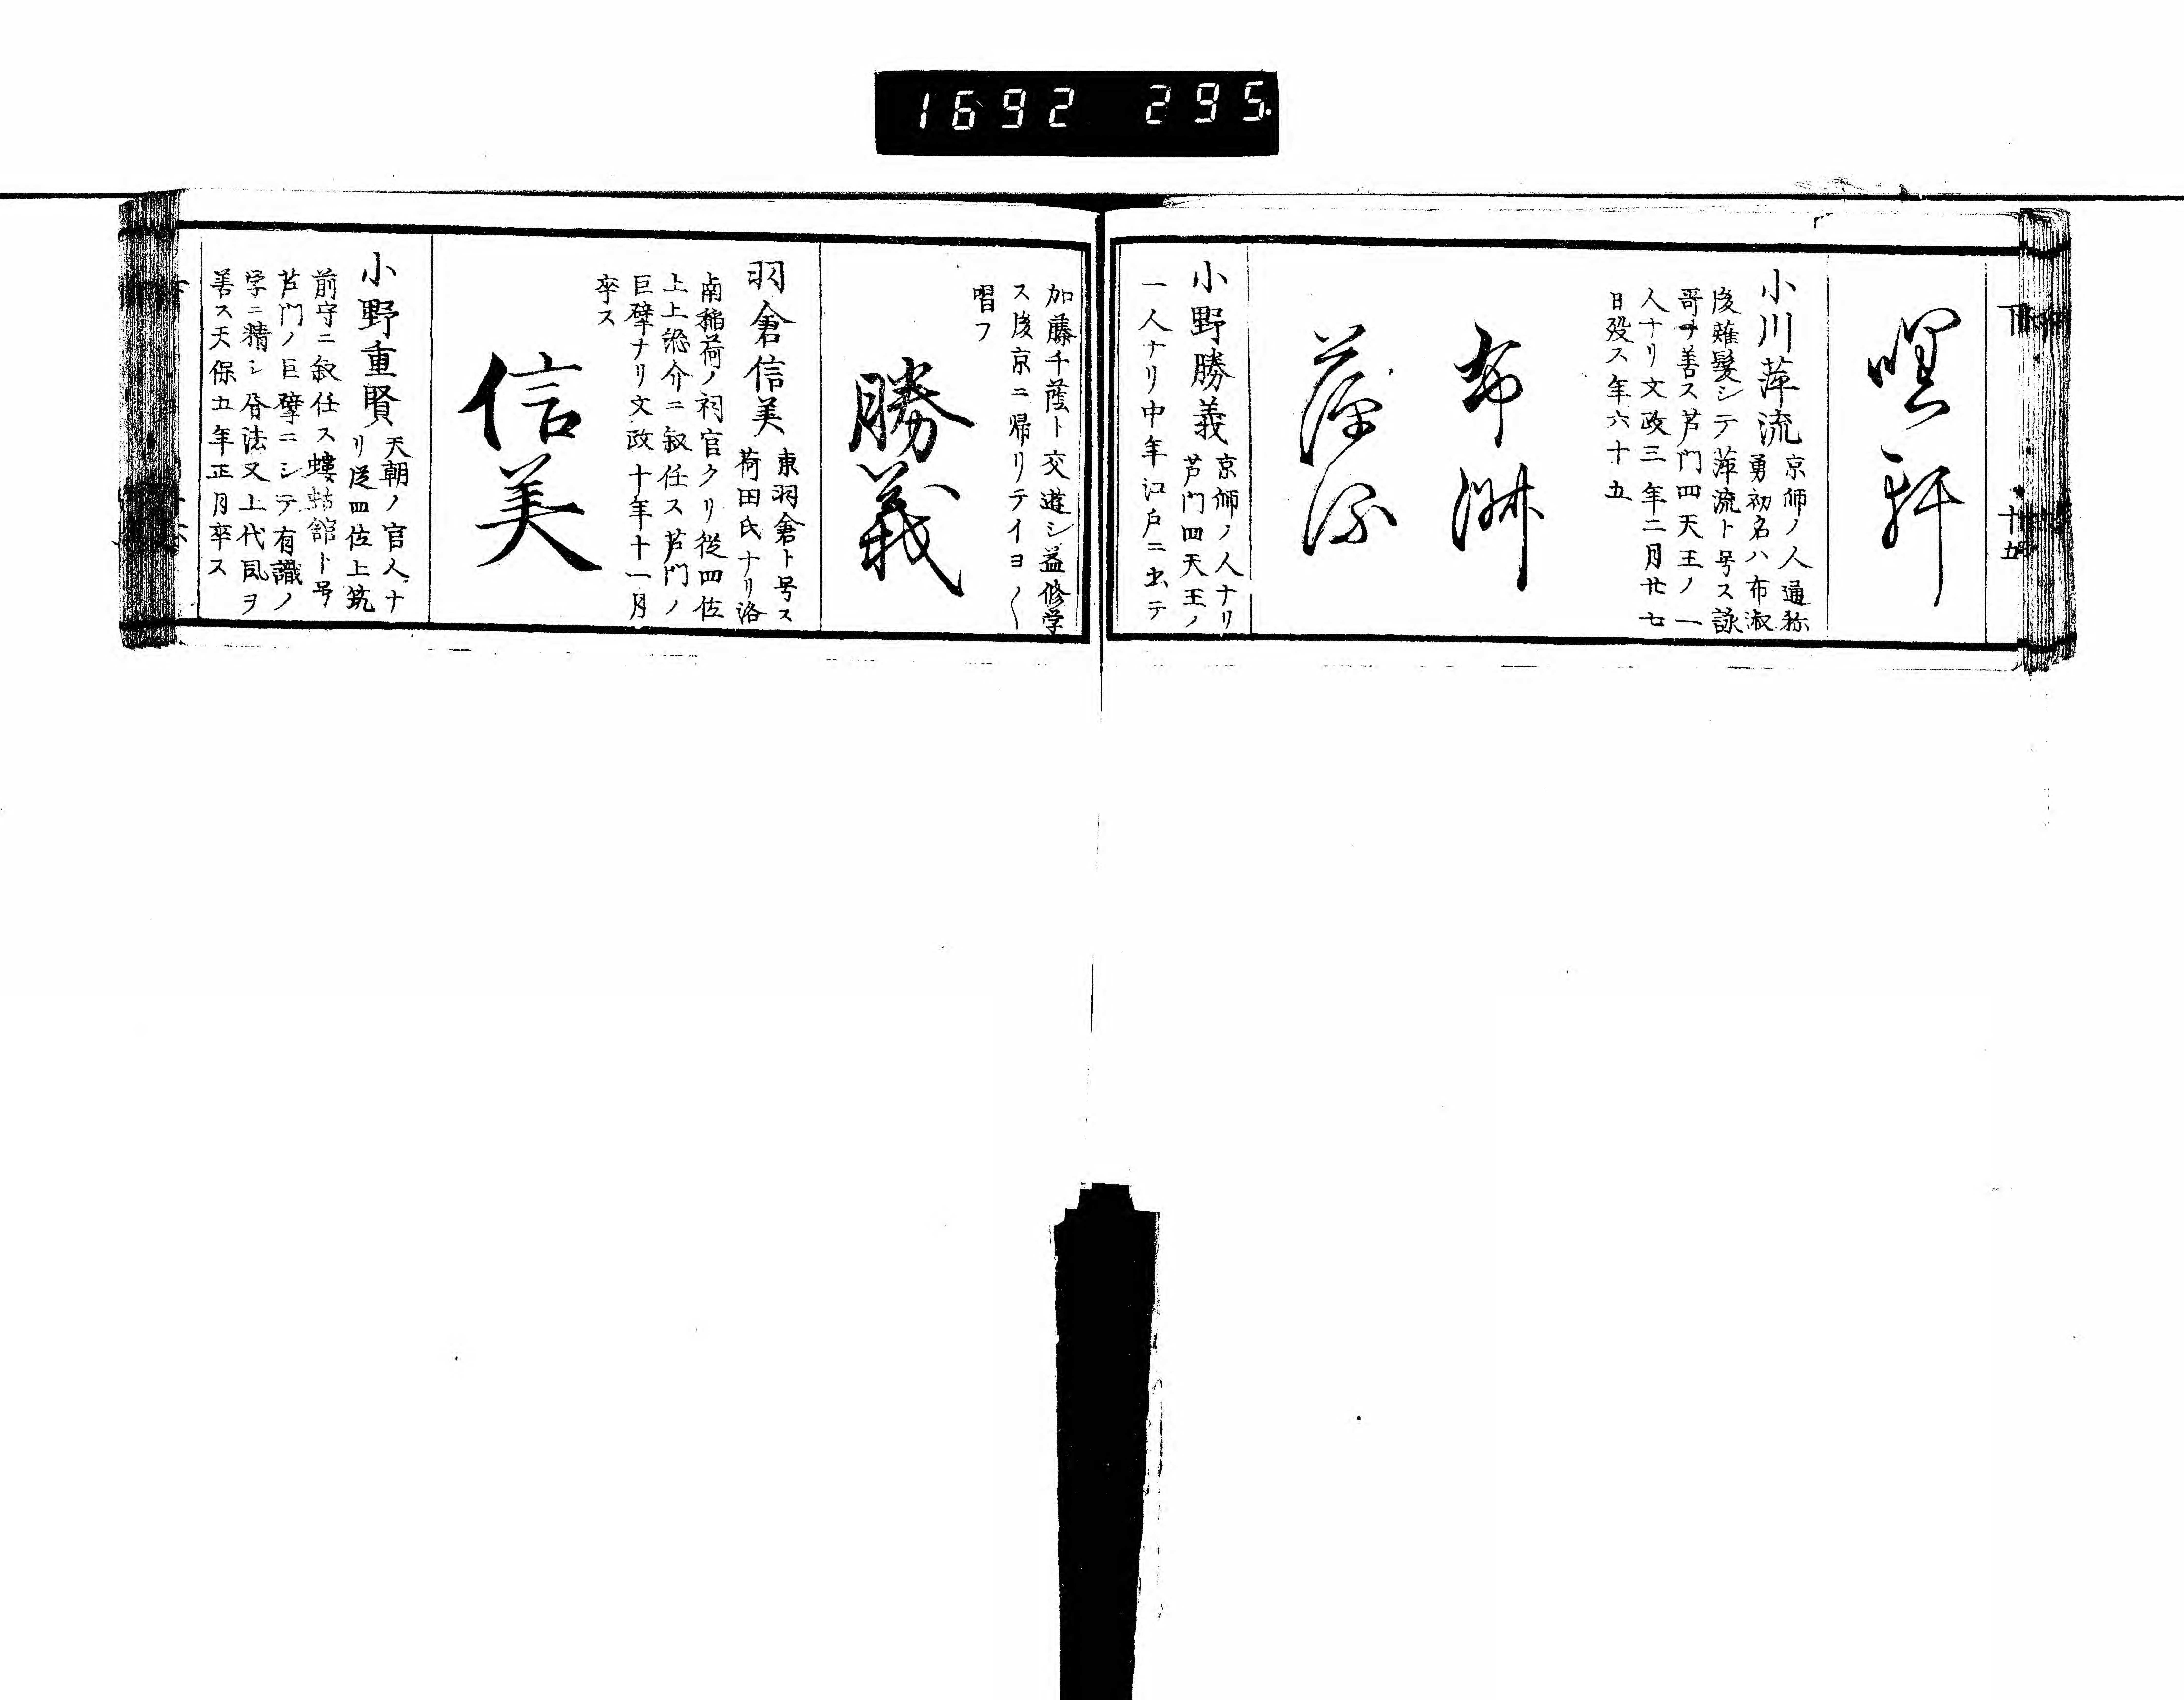 1692 295.
下
十五
嘿軒
小川萍流
京師ノ人通称
勇初名ハ布淑
後薙髪シテ萍流ト号ス詠
哥ヲ善ス芦門四天王ノ一
人ナリ文政三年二月廿七
日歿ス年六十五
布淑
萍流
小野勝義
京師ノ人ナリ
芦門四天王ノ
一人ナリ中年江戸ニ出テ
加藤千蔭ト交遊シ益修学
ス後京ニ帰リテイヨ〱
唱フ
勝義
羽倉信美
東羽倉ト号ス
荷田氏ナリ洛
南稲荷ノ祠官タリ従四位
上上総介ニ叙任ス芦門ノ
巨擘ナリ文政十年十一月
卒ス
信美
小野重賢
天朝ノ官人ナ
リ従四位上筑
前守ニ叙任ス螻蛄館ト号
芦門ノ巨擘ニシテ有識ノ
学ニ精シ唇法又上代風ヲ
善ス天保五年正月卒ス